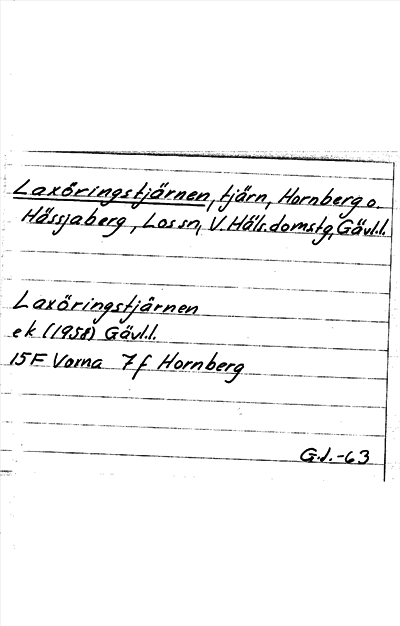 Laxöringstjärnen, tjärn, Hornberg o.
Hässjaberg, Los sn, V. Häls. domstg, Gävl.l.
Laxöringstjärnen
ek (1958) Gävl.l.
15F Voxna 7f Hornberg
G.J.-63